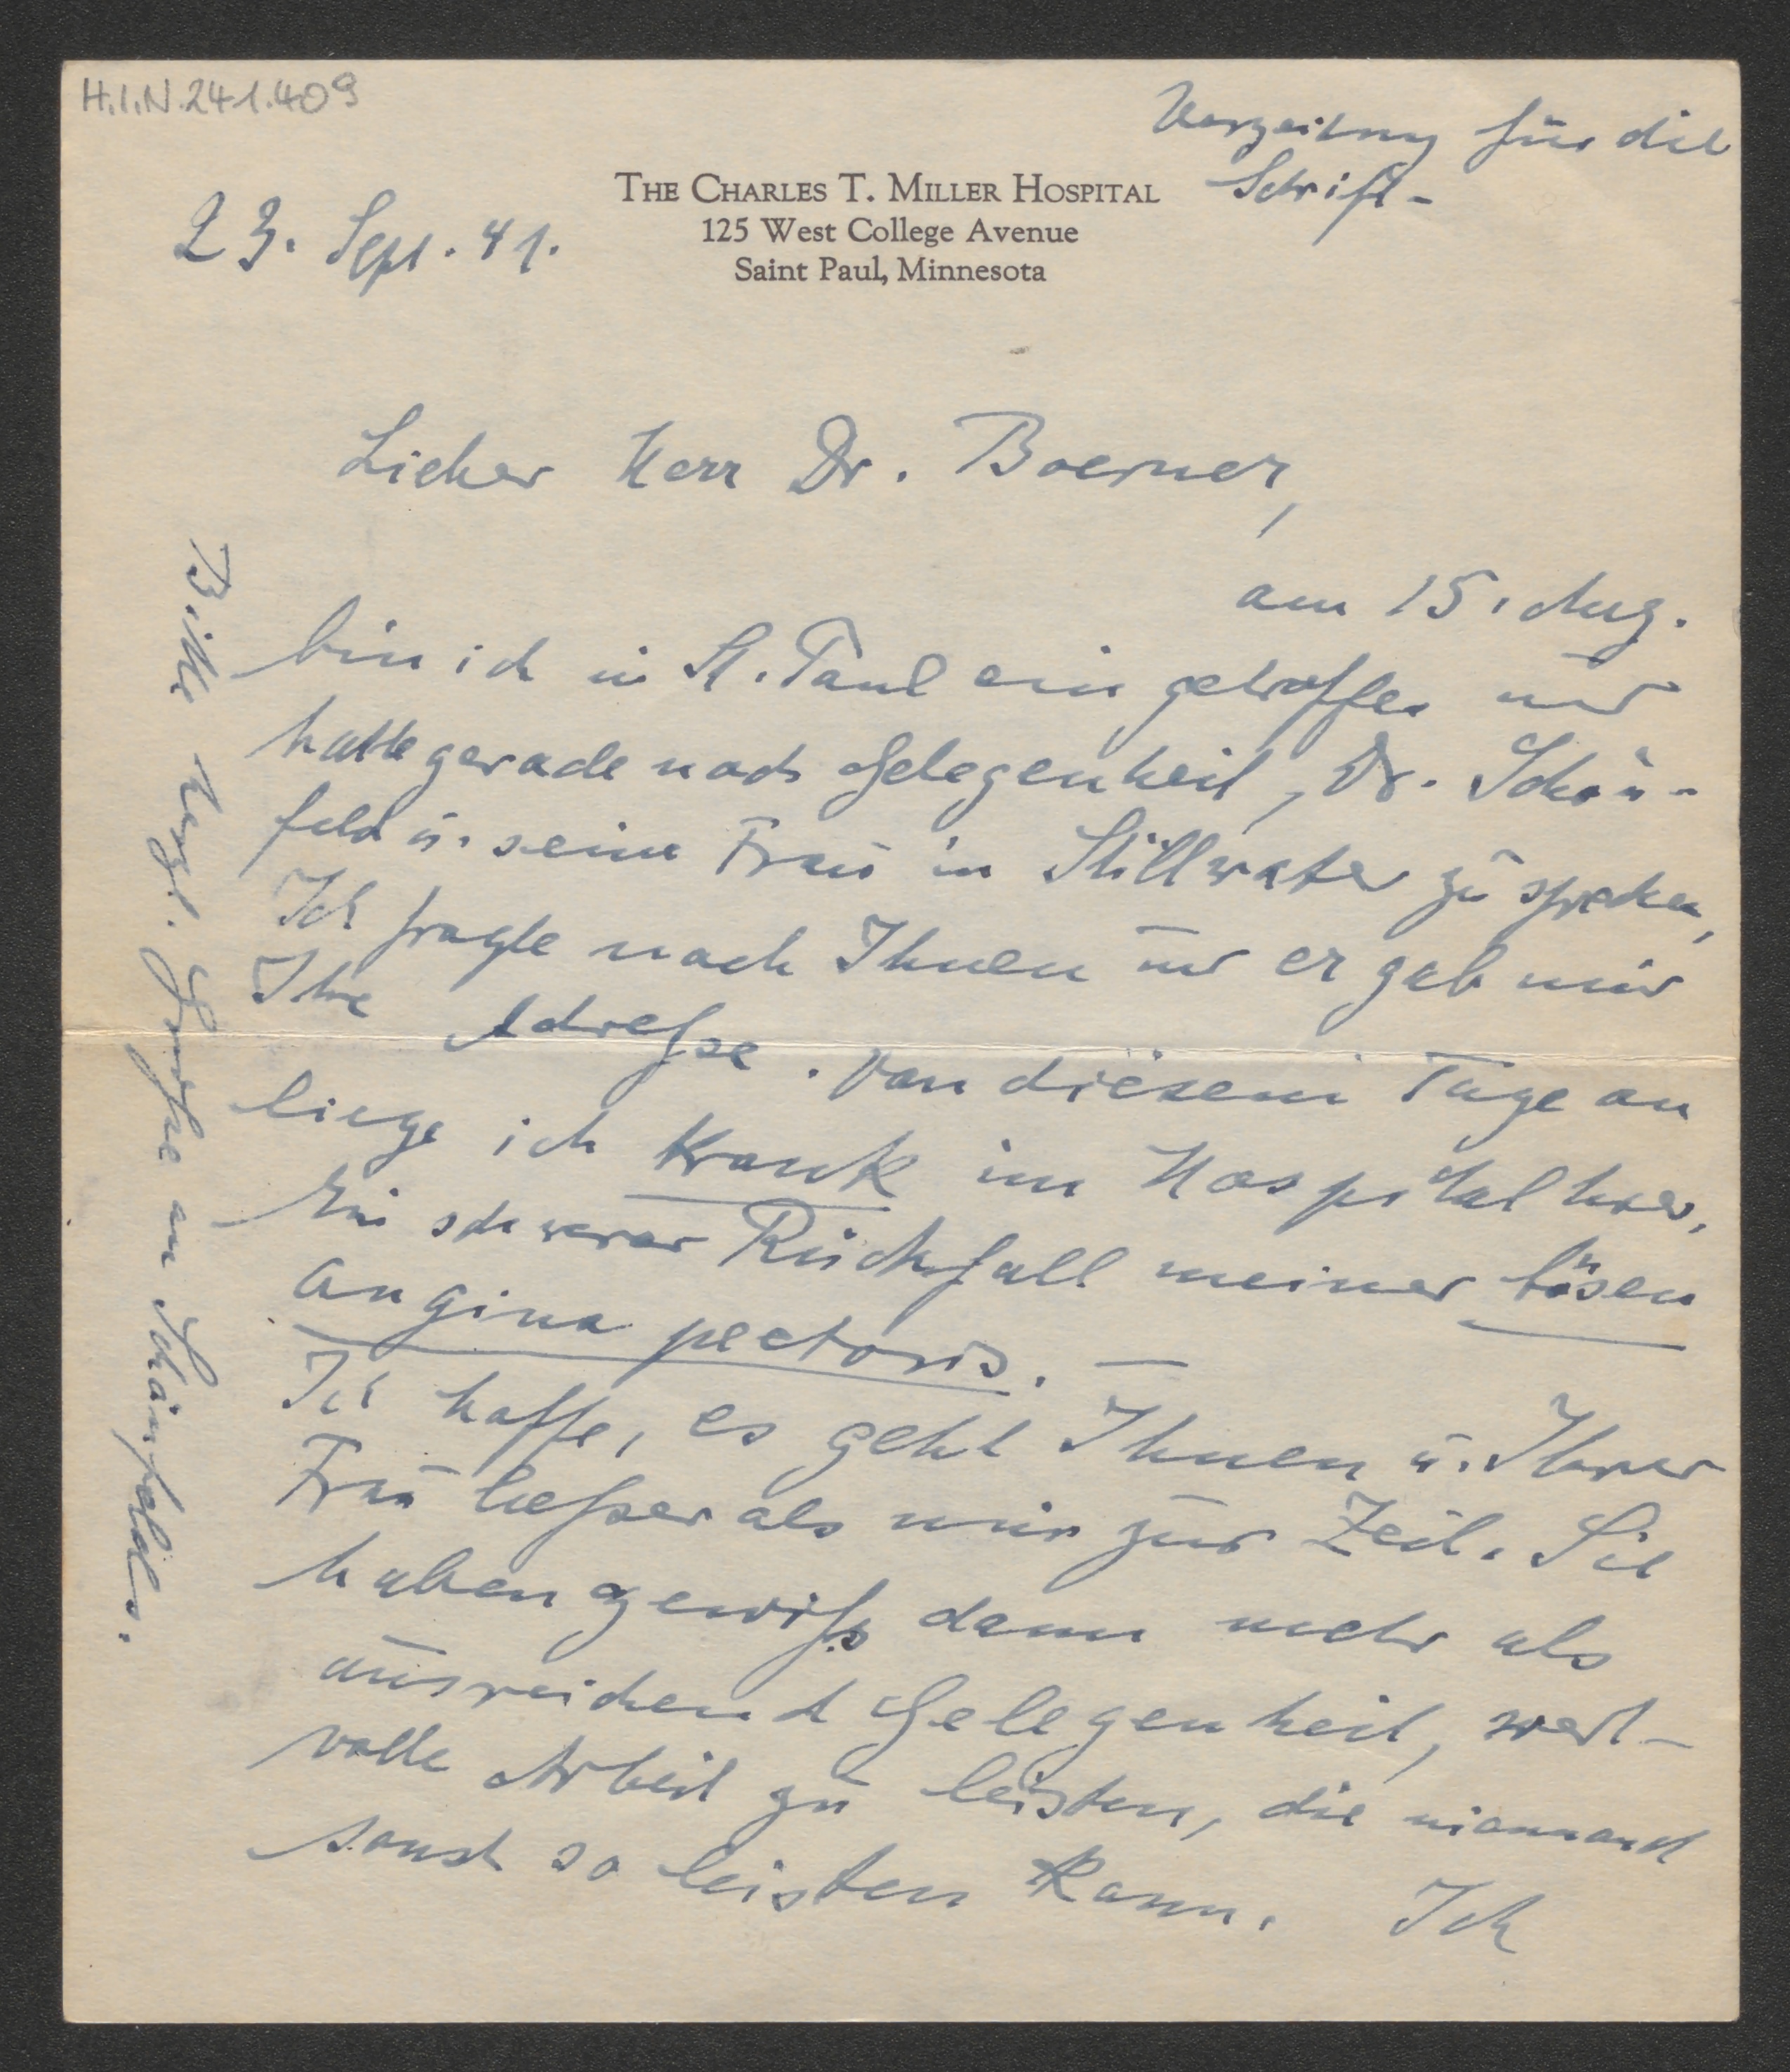 H.I.N. 241.409
Verzeihung für die
Schrift -
THE CHARLES T. MILLER HOSPITAL
125 West College Avenue
Saint Paul, Minnesota
23. Sept. 41.
Lieber Herr Dr. Boerner,
am 15. Aug.
bin ich in St. Paul eingetroffen und
hatte gerade noch Gelegenheit, Dr. Schön-
feld u. seine Frau in Stillwater zu sprechen,
Ich fragte nach Ihnen und er gab mir
Ihre Adresse. Von diesem Tage an
liege ich krank im Hospital hier.
Ein schwerer Rückfall meiner bösen
angina pectoris. —
Ich hoffe, es geht Ihnen u. Ihrer
Frau besser als mir zur Zeit. Sie
haben gewiß dann mehr als
ausreichend Gelegenheit, wert-
volle Arbeit zu leisten, die niemand
sonst so leisten kann. Ich
Bitte herzl. Grüße an Schönfelds.